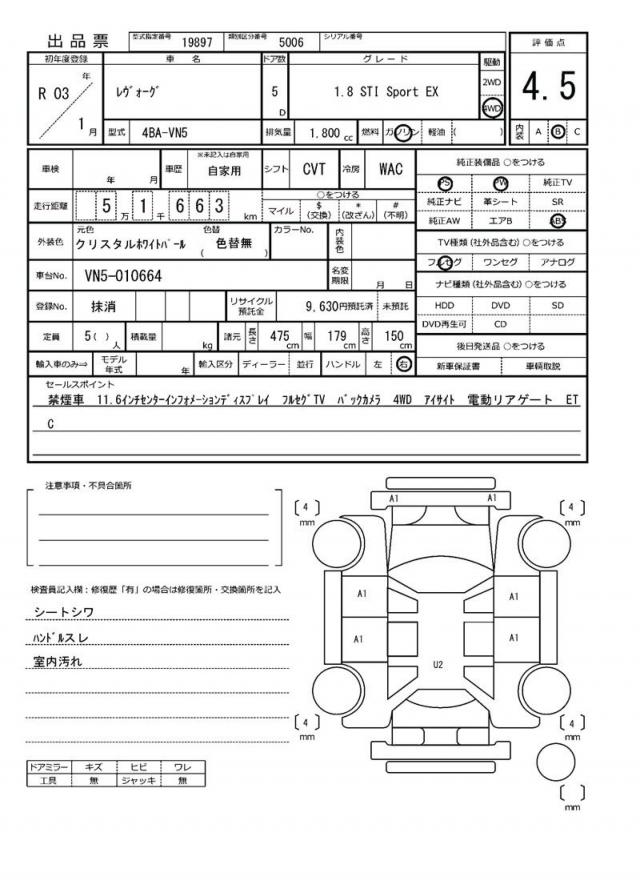 出品票 型式指定番号 19897 類別区分番号 5006 シリアル番号
評価点
4.5
初年度登録 車名 ドア数 グレード 駆動
R 03 年 ﾚｳﾞｫｰｸﾞ 5 D 1.8 STI Sport EX 2WD
4WD
1 月 型式 4BA-VN5 排気量 1.800 cc 燃料 ガソリン 軽油 ( )
内装 A B C
車検 年 月 車歴 ※未記入は自家用 自家用 シフト CVT 冷房 WAC
走行距離 5 万 1 千 6 6 3 km
○をつける
マイル $ (交換) * (改ざん) # (不明)
外装色 元色 クリスタルホワイトパール 色替 ( 色替無 ) カラーNo. 内装色
車台No. VN5-010664 名変期限 月 日
登録No. 抹消 リサイクル預託金 9,630円預託済 未預託
定員 5( ) 人 積載量 kg 諸元 長さ 475 cm 幅 179 cm 高さ 150 cm
輸入車のみ⇒ モデル年式 年 輸入区分 ディーラー 並行 ハンドル 左 右
純正装備品 ○をつける
PS PW 純正TV
純正ナビ 革シート SR
純正AW エアB ABS
TV種類(社外品含む)○をつける
フルセグ ワンセグ アナログ
ナビ種類(社外品含む)○をつける
HDD DVD SD
DVD再生可 CD
後日発送品 ○をつける
新車保証書 車輌取説
セールスポイント
禁煙車 11.6ｲﾝﾁｾﾝﾀｰｲﾝﾌｫﾒｰｼｮﾝﾃﾞｨｽﾌﾟﾚｲ フルセグTV バックカメラ 4WD アイサイト 電動リアゲート ET
C
注意事項・不具合箇所
検査員記入欄：修復歴「有」の場合は修復箇所・交換箇所を記入
シートシワ
ﾊﾝﾄﾞﾙスレ
室内汚れ
ドアミラー キズ ヒビ ワレ
工具 無 ジャッキ 無
A1 A1
[ 4 ] mm
[ 4 ] mm
A1 A1
A1 A1
U2
[ 4 ] mm
[ 4 ] mm
[ ] mm